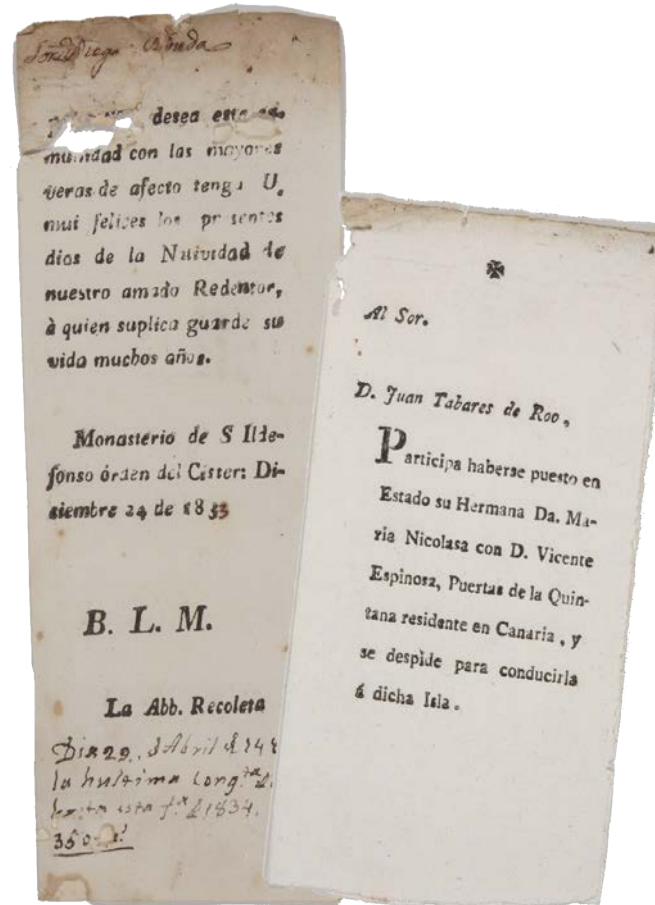 desea esta co-
munidad con las mayores
veras de afecto tenga U.
mui felices los presentes
dias de la Natividad de
nuestro amado Redentor,
à quien suplica guarde su
vida muchos años.
Monasterio de S Ilde-
fonso órden del Cister: Di-
siembre 24 de 1833
B. L. M.
La Abb. Recoleta
Dia 29, d Abril d
la hultima
hasta esta 1834.
350
Al Sor.
D. Juan Tabares de Roo,
Participa haberse puesto en
Estado su Hermana Da. Ma-
ria Nicolasa con D. Vicente
Espinosa, Puertas de la Quin-
tana residente en Canaria, y
se despide para conducirla
á dicha Isla.